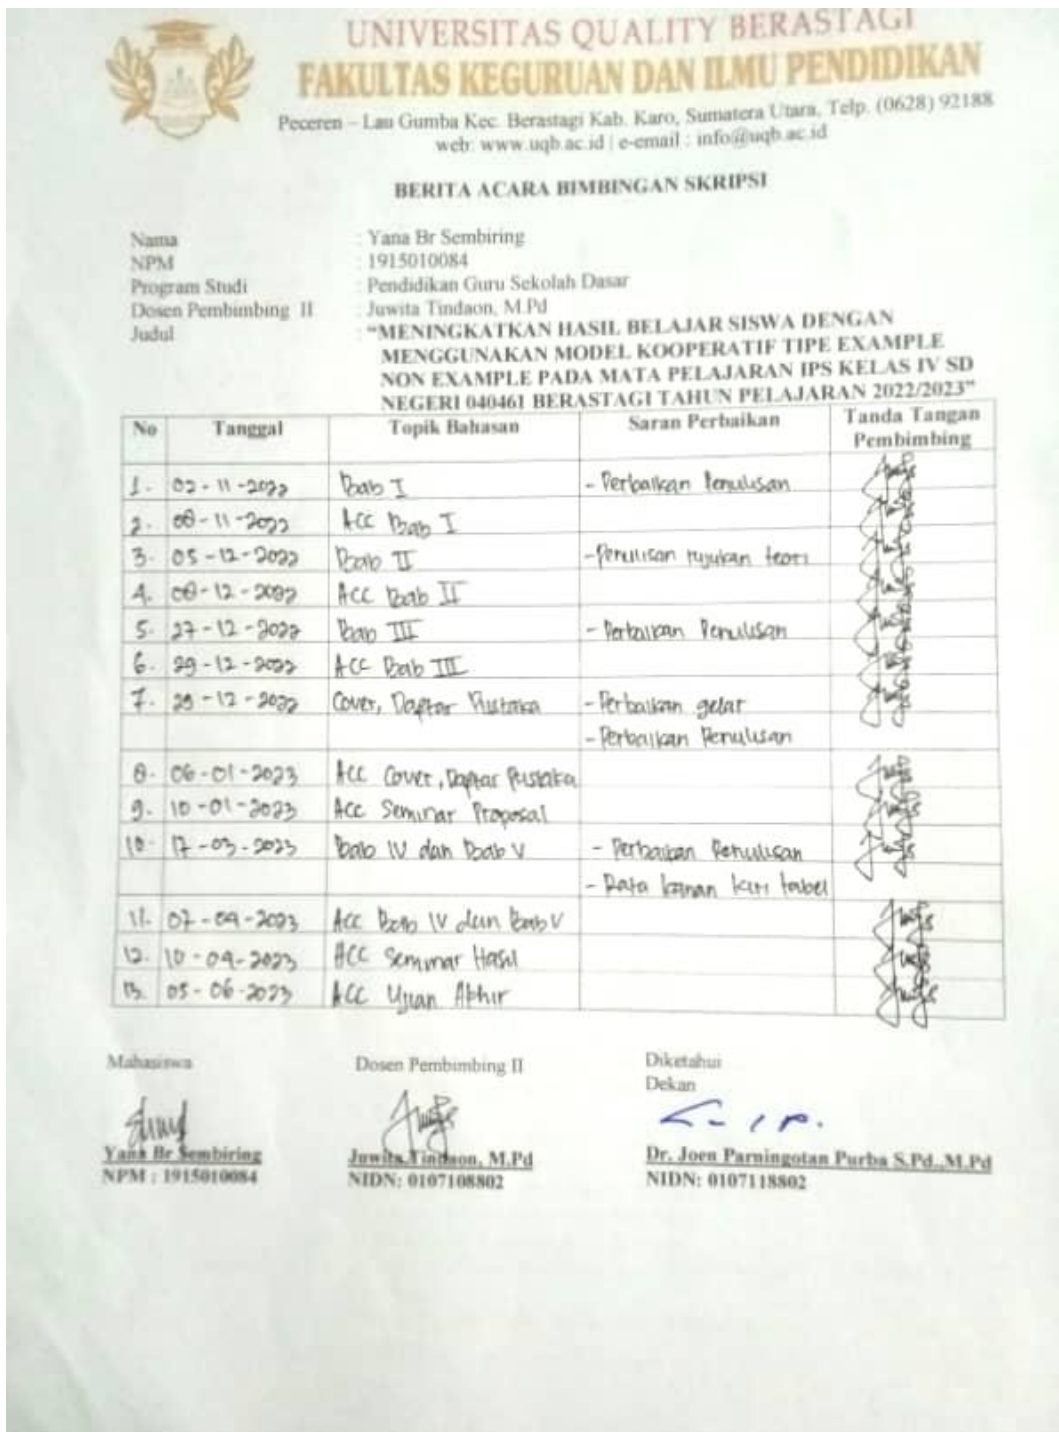 UNIVERSITAS QUALITY BERASTAGI
FAKULTAS KEGURUAN DAN ILMU PENDIDIKAN
Peceren – Lau Gumba Kec. Berastagi Kab. Karo, Sumatera Utara, Telp. (0628) 92188
web: www.uqb.ac.id | e-email : info@uqb.ac.id
BERITA ACARA BIMBINGAN SKRIPSI
Nama : Yana Br Sembiring
NPM : 1915010084
Program Studi : Pendidikan Guru Sekolah Dasar
Dosen Pembimbing II : Juwita Tindaon, M.Pd
Judul : “MENINGKATKAN HASIL BELAJAR SISWA DENGAN
MENGGUNAKAN MODEL KOOPERATIF TIPE EXAMPLE
NON EXAMPLE PADA MATA PELAJARAN IPS KELAS IV SD
NEGERI 040461 BERASTAGI TAHUN PELAJARAN 2022/2023”
No Tanggal Topik Bahasan Saran Perbaikan Tanda Tangan
Pembimbing
1. 02-11-2022 Bab I - Perbaikan Penulisan
2. 08-11-2022 ACC Bab I
3. 05-12-2022 Bab II - Penulisan rujukan teori
4. 08-12-2022 ACC Bab II
5. 27-12-2022 Bab III - Perbaikan Penulisan
6. 29-12-2022 ACC Bab III
7. 29-12-2022 Cover, Daftar Pustaka - Perbaikan gelar
- Perbaikan Penulisan
8. 06-01-2023 ACC Cover, Daftar Pustaka
9. 10-01-2023 Acc Seminar Proposal
10. 17-03-2023 Bab IV dan Bab V - Perbaikan Penulisan
- Rata kanan kiri tabel
11. 07-04-2023 Acc Bab IV dan Bab V
12. 10-04-2023 ACC Seminar Hasil
13. 05-06-2023 ACC Ujian Akhir
Mahasiswa Dosen Pembimbing II Diketahui
Dekan
Yana Br Sembiring Juwita Tindaon, M.Pd Dr. Joen Parningotan Purba S.Pd.,M.Pd
NPM : 1915010084 NIDN: 0107108802 NIDN: 0107118802